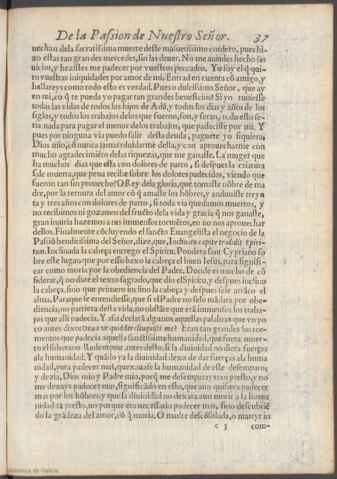 De la Passion de Nuestro Señor. 37
uechan dela sacratissima muerte deste māsuetissimo cordero, pues hi-
zo estas tan grandes mercedes, sin las deuer. No me auiades hecho ser
uicios, y hezistes me padecer por vuestros peccados. Yo soy el q̄ qui-
to vuestras iniquidades por amor de mi, Entrad en cuenta cō amigo, y
hallareys como todo esto es verdad. Pues o dulcissimo Señor, que ay
en mi, cō q̄ te pueda yo pagar tan grandes beneficios? Si yo tuuiesse
todas las vidas de todos los hijos de Adā, y todos los dias y años de los
siglos, y todos los trabajos delos que fueron, son, y seran, todo esto se-
ria nada para pagar el menor delos trabajos, que padeciste por mi. Y
pues por ninguna via puedo salir desta deuda, paguete yo siquiera,
Dios mio, cō nunca jamas oluidarme della, y con aprouecharme con
mucho agradecimiēto dela riquezas, que me ganaste. La muger que
ha muchos dias que esta con dolores de parto, si despues la criatura
sale muerta, que pena recibe sobre los dolores padecidos, viendo que
fueron tan sin prouecho? O Rey dela gloria, que tomaste nōbre de ma
dre, por la ternura del amor cō q̄ amaste los hōbres, y anduuiste treyn
ta y tres años con dolores de parto, si toda via quedamos muertos, y
no recibimos ni gozamos del fructo dela vida y gracia q̄ nos ganaste,
gran injuria hazemos a tus immensos tormētos, en no nos aprouechar
dellos. Finalmente cōcluyendo el sancto Euangelista el negocio de la
Passiō benditissima del Señor, dize, que, Inclinato capite tradidit Spiri-
tum. Inclinada la cabeça entrego el Spiritu. Pondera sant Cypriano so
bre este lugar, que por esso baxo la cabeça el buen Iesus, para signifi-
car como moria por la obediencia del Padre. Donde es mucho de cō
siderar, q̄ no dize el texto sagrado, que dio el Spiritu, y despues inclino
la cabeça, sino que primero inclino la cabeça y despues se le arrāco el
alma. Para que se entendiesse, que si el Padre no selo mādara por obe-
diencia, no partiera desta vida, no obstāte que erā immensos los traba-
jos que alli padecia. Y assi declarā algunos aquellas palabras que vn po
co antes dixo: Deus vt quid dereliquisti me? Eran tan grandes los tor-
mentos que padecia aquella sanctissima humanidad, que fuera muer-
to el soberano Redemptor antes dello, si la diuinidad no diera fuerças
ala humanidad. Y quādo ya la diuinidad dexo de dar fuerças ala huma
nidad, para padecer mas, quexauase la humanidad de este desemparo;
y dezia, Dios mio y Padre mio, porq̄ me desemparays tan presto, y no
me dexays padecer mas, significādo en esto, que aun quisiera padecer
mas por los hōbres, y que la diuinidad no dexara aun morir a la huma
nidad tā presto, no porque era necessario padecer mas, sino descubriē
do la grādeza del amor, cō q̄ moria. O madre descōsolada, o martyr in
c 3 com-
Biblioteca de Galicia